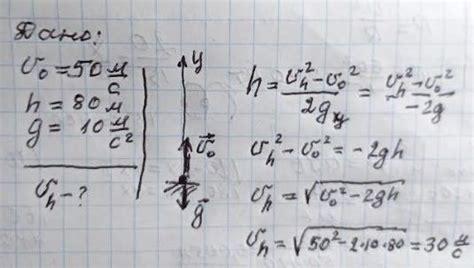 Дано:
v₀ = 50 м/с
h = 80 м
g = 10 м/с²
vₕ - ?
y
v⃗₀
g⃗
h = (vₕ² - v₀²)/(2g_y) = (vₕ² - v₀²)/(-2g)
vₕ² - v₀² = -2gh
vₕ = √(v₀² - 2gh)
vₕ = √(50² - 2·10·80) = 30 м/с